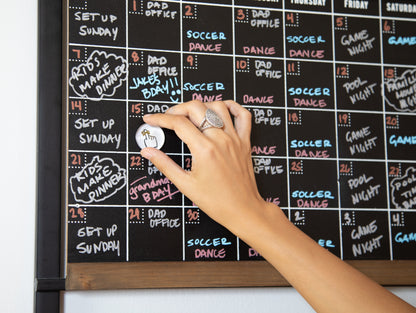 THURSDAY FRIDAY SATURDAY
SET UP
SUNDAY
1 DAD
OFFICE
2
SOCCER
DANCE
3 DAD
OFFICE
DANCE
4
SOCCER
DANCE
5
GAME
NIGHT
6
GAME
7
KIDS
MAKE
DINNER
8
DAD
OFFICE
JAKE'S
BDAY!!
9
SOCCER
DANCE
10 DAD
OFFICE
DANCE
11
SOCCER
DANCE
12
POOL
NIGHT
13
14
SET UP
SUNDAY
15
DAD
OFFICE
DANCE
SOCCER
DANCE
19
GAME
NIGHT
20
GAME
21
KIDS
MAKE
DINNER
grandma's
BDAY
DAD
OFFICE
DANCE
SOCCER
DANCE
POOL
NIGHT
28
SET UP
SUNDAY
29 DAD
OFFICE
30
SOCCER
DANCE
SOCCER
GAME
NIGHT
GAME